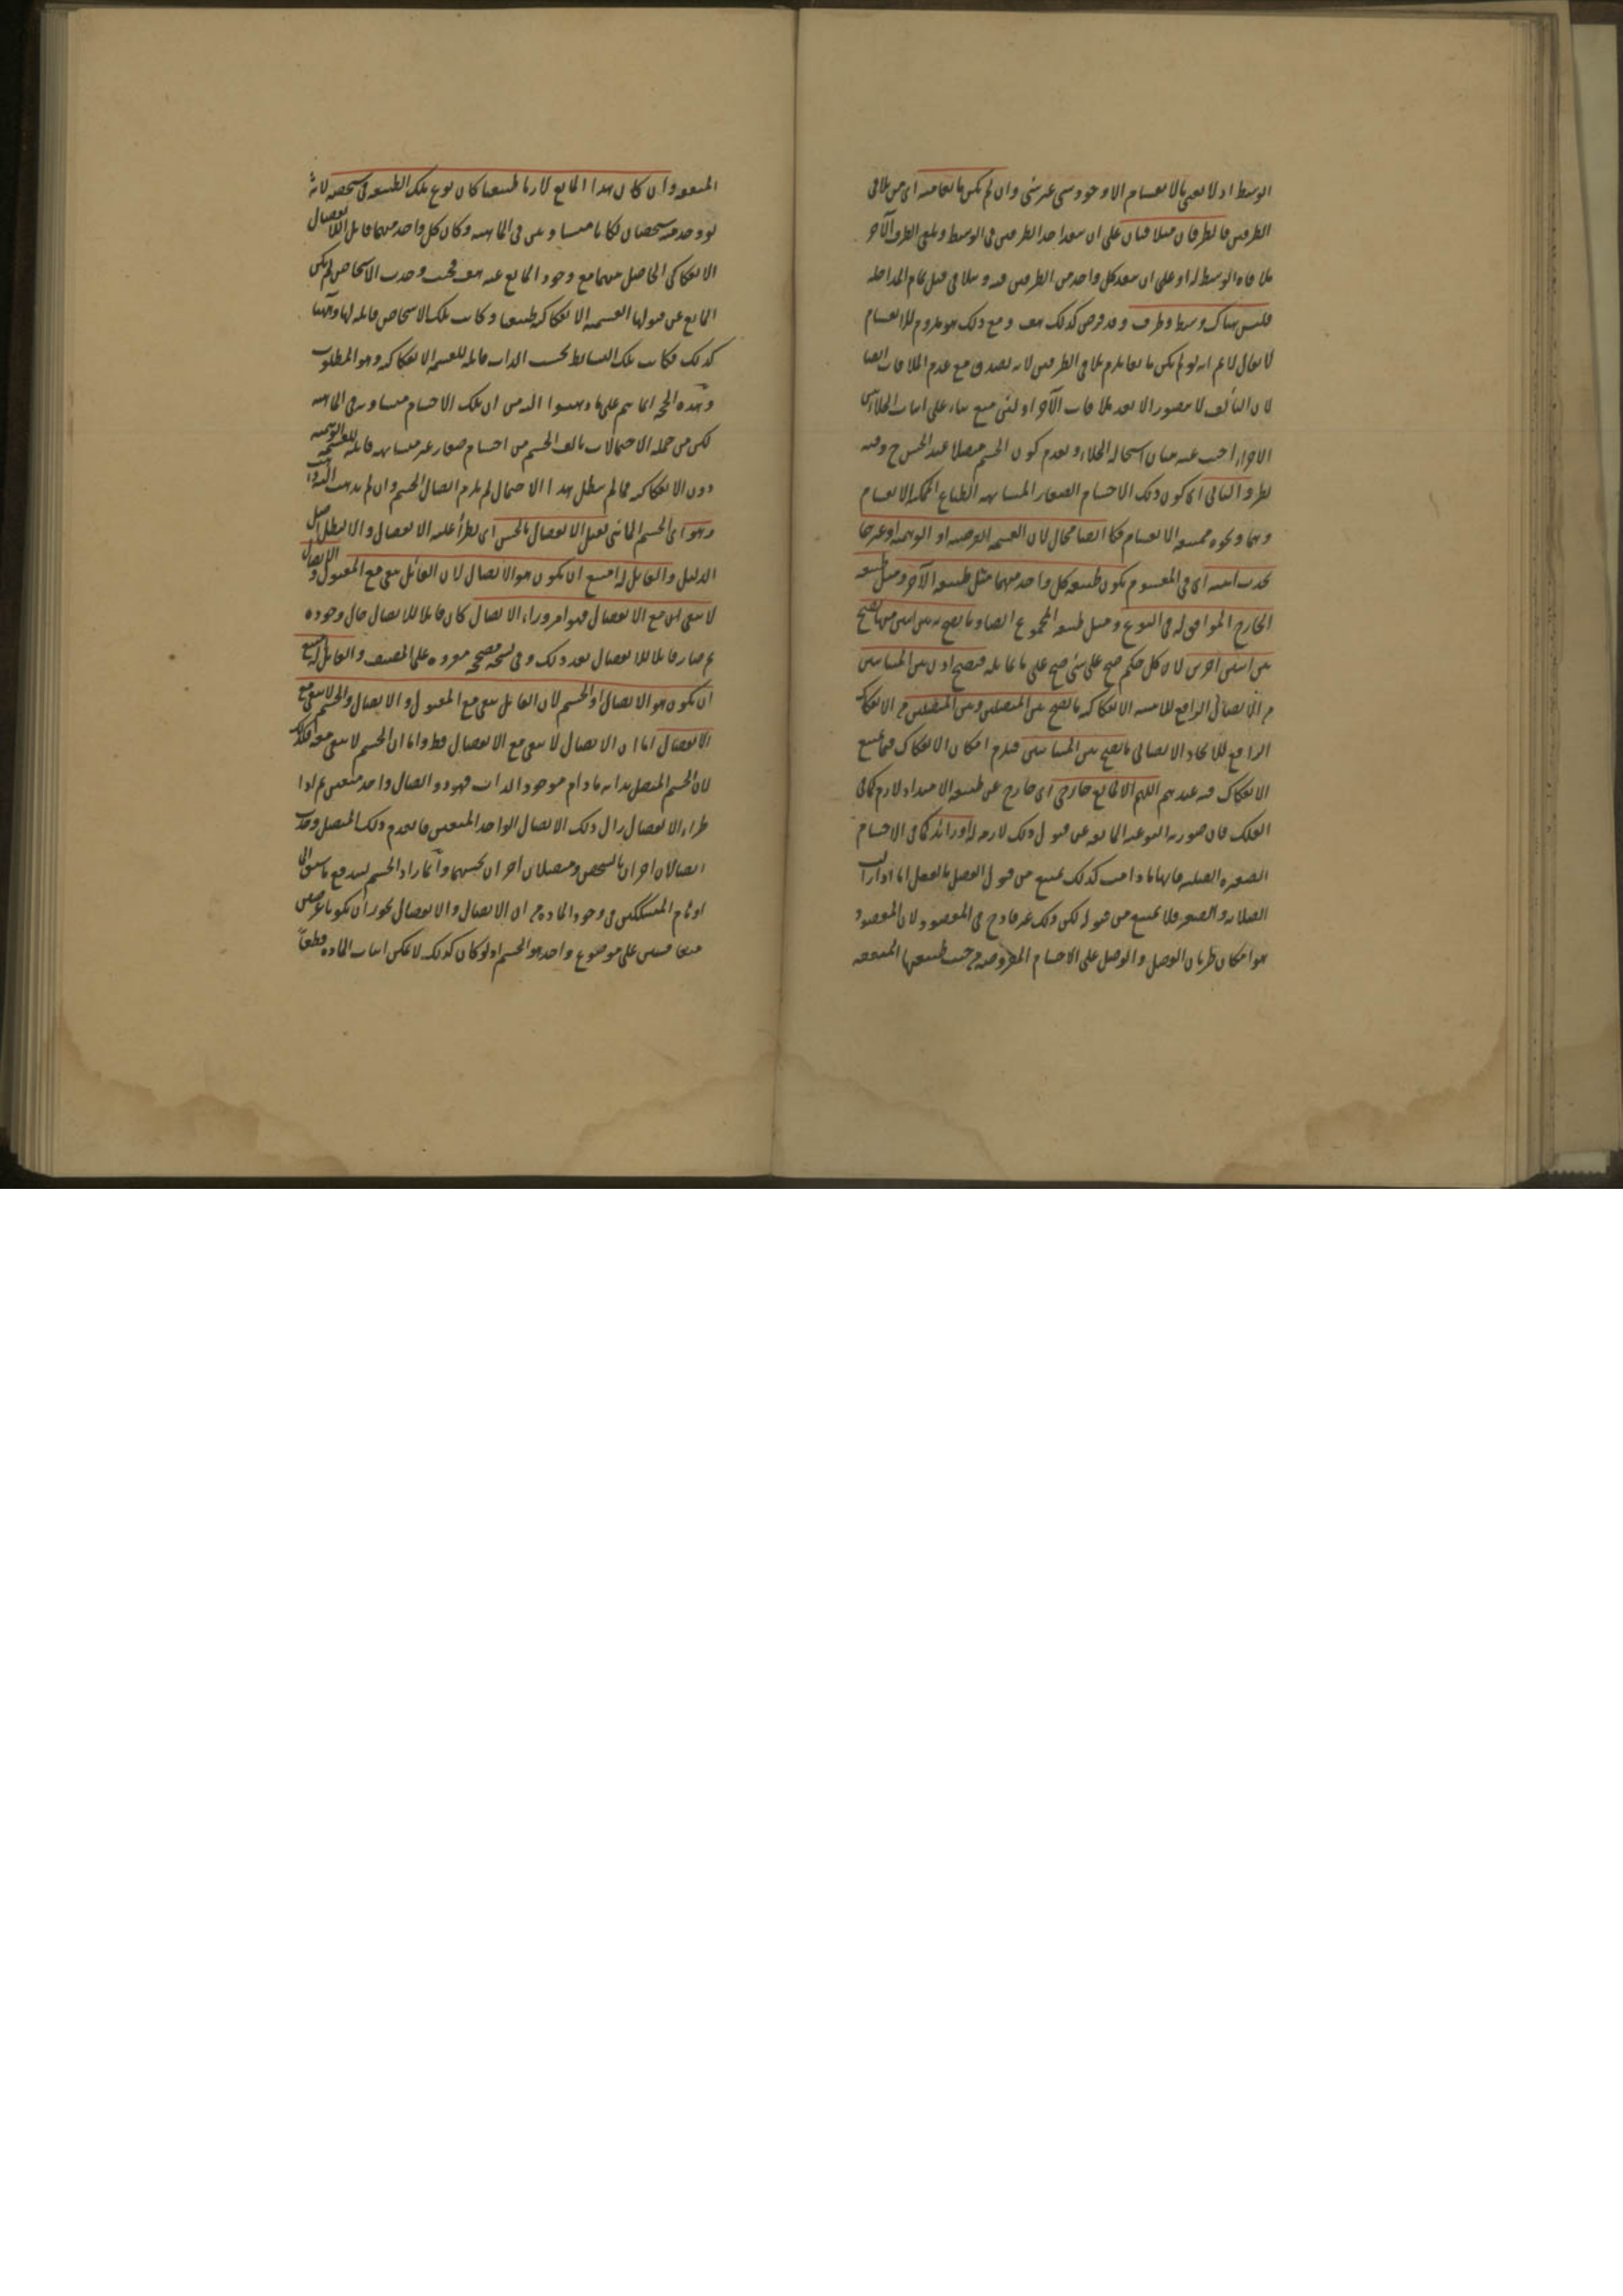 الوسط اذ لا نعنى بالانقسام الا وجود شىء غير شىء وان لم يكن مانعا منه اى من تلاقى
الطرفين فالطرفان متلاقيان على ان ينفذ احد الطرفين فى الوسط ويلقى الطرف الآخر
ملاقاة الوسط له او على ان ينفذ كل واحد من الطرفين فيه ويتلاقى قبل تمام المداخلة
فليس هناك وسط وطرف وقد فرض كذلك هف ومع ذلك هو ملزوم للانقسام
لا يقال لا نم انه لو لم يكن مانعا يلزم تلاقى الطرفين لانه يصدق مع عدم الملاقات ايضا
لان التألف لا يتصور الا بعد ملاقات الآخر او لشىء منع بناء على اثبات الخلاء بين
الاجزاء اجيب عنه ببيان استحالة الخلاء وبعدم كون الجسم متصلا عند الحس ح وفيه
نظر و الثانى اى كون ذلك الاجسام الصغار المتشابهة الطباع الممكنة الانقسام
وهما ونحوه ممتنعة الانقسام فكا ايضا محال لان القسمة الفرضية او الوهمية او غيرها
تحدث اثنينية اى فى المقسوم يكون طبيعة كل واحد منهما مثل طبيعة الآخر ومثل طبيعة
الخارج الموافق له فى النوع ومثل طبيعة المجموع ايضا وما يصح بين اثنين منها يصح
بين اثنين آخرين لان كل حكم صح على شىء صح على ما يماثله فيصح اذن بين المتباينين
من الاتصال الرافع للاثنينية الانفكاكية ما يصح بين المتصلين وبين المتصلين من الانفكاك
الرافع للاتحاد الاتصالى ما يصح بين المتباينين فيلزم امكان الانفكاك فيما يمتنع
الانفكاك فيه عندهم اللهم الا لمانع خارجى اى خارج عن طبيعة الامتداد لازم كما فى
الفلك فان صورته النوعية المانعة عن قبول ذلك لازمة له او زائد كما فى الاجسام
الصغيرة الصلبة فانها ما دامت كذلك يمتنع من قبول الفصل بالفعل اما اذا زالت
الصلابة والصغر فلا يمتنع من قبوله لكن ذلك غير قادح فى المقصود لان المقصود
هو امكان طريان الفصل والوصل على الاجسام المفروضة من حيث طبيعتها المتفقة
المتفقة وان كان هذا المانع لازما طبيعيا كان نوع تلك الطبيعة فى شخصه لانه
لو وجد منه شخصان لكانا متساويين فى الماهية وكان كل واحد منهما قابل الانفصال
الانفكاكى الحاصل بينهما مع وجود المانع عنه هف فحيث وجدت الاشخاص لم يكن
المانع عن قبولها القسمة الانفكاكية طبيعيا وكانت تلك الاشخاص قابلة لها وههنا
كذلك فكانت تلك البسائط بحسب الذات قابلة للقسمة الانفكاكية وهو المطلوب
وهذه الحجة انما يتم على ما ذهبوا اليه من ان تلك الاجسام متساوية فى الماهية
لكن من جملة الاحتمالات تألف الجسم من اجسام صغار غير متشابهة قابلة للقسمة الوهمية
دون الانفكاكية فما لم يبطل هذا الاحتمال لم يلزم اتصال الجسم وان لم يذهب اليه
وهو اى الجسم المائى يقبل الانفصال بالحس اى يطرأ عليه الانفصال والا لبطل اصل
الدليل والقابل له امتنع ان يكون هو الاتصال لان القابل يبقى مع المقبول والاتصال
لا يبقى مع الانفصال فهو امر وراء الاتصال كان قابلا للاتصال حال وجوده
ثم صار قابلا للانفصال بعد ذلك وفى نسخة مصححة مقروءة على المصنف والقابل له امتنع
ان يكون هو الاتصال او الجسم لان القابل يبقى مع المقبول والاتصال والجسم لا يبقى مع
الانفصال اما ان الاتصال لا يبقى مع الانفصال فظ واما ان الجسم لا يبقى معه فكذلك
لان الجسم المتصل بذاته ما دام موجود الذات فهو ذو اتصال واحد متعين ثم اذا
طراء الانفصال زال ذلك الاتصال الواحد المتعين فانعدم ذلك المتصل وحدث
اتصالان آخران بالشخص ومتصلان آخران بحسبهما وانما زاد الجسم ليندفع ما سبق الى
اوهام المتشككين فى وجود المادة من ان الاتصال والانفصال يجوز ان يكونا عرضين
متعاقبين على موضوع واحد هو الجسم اذ لو كان كذلك لا يمكن اثبات المادة قطعا